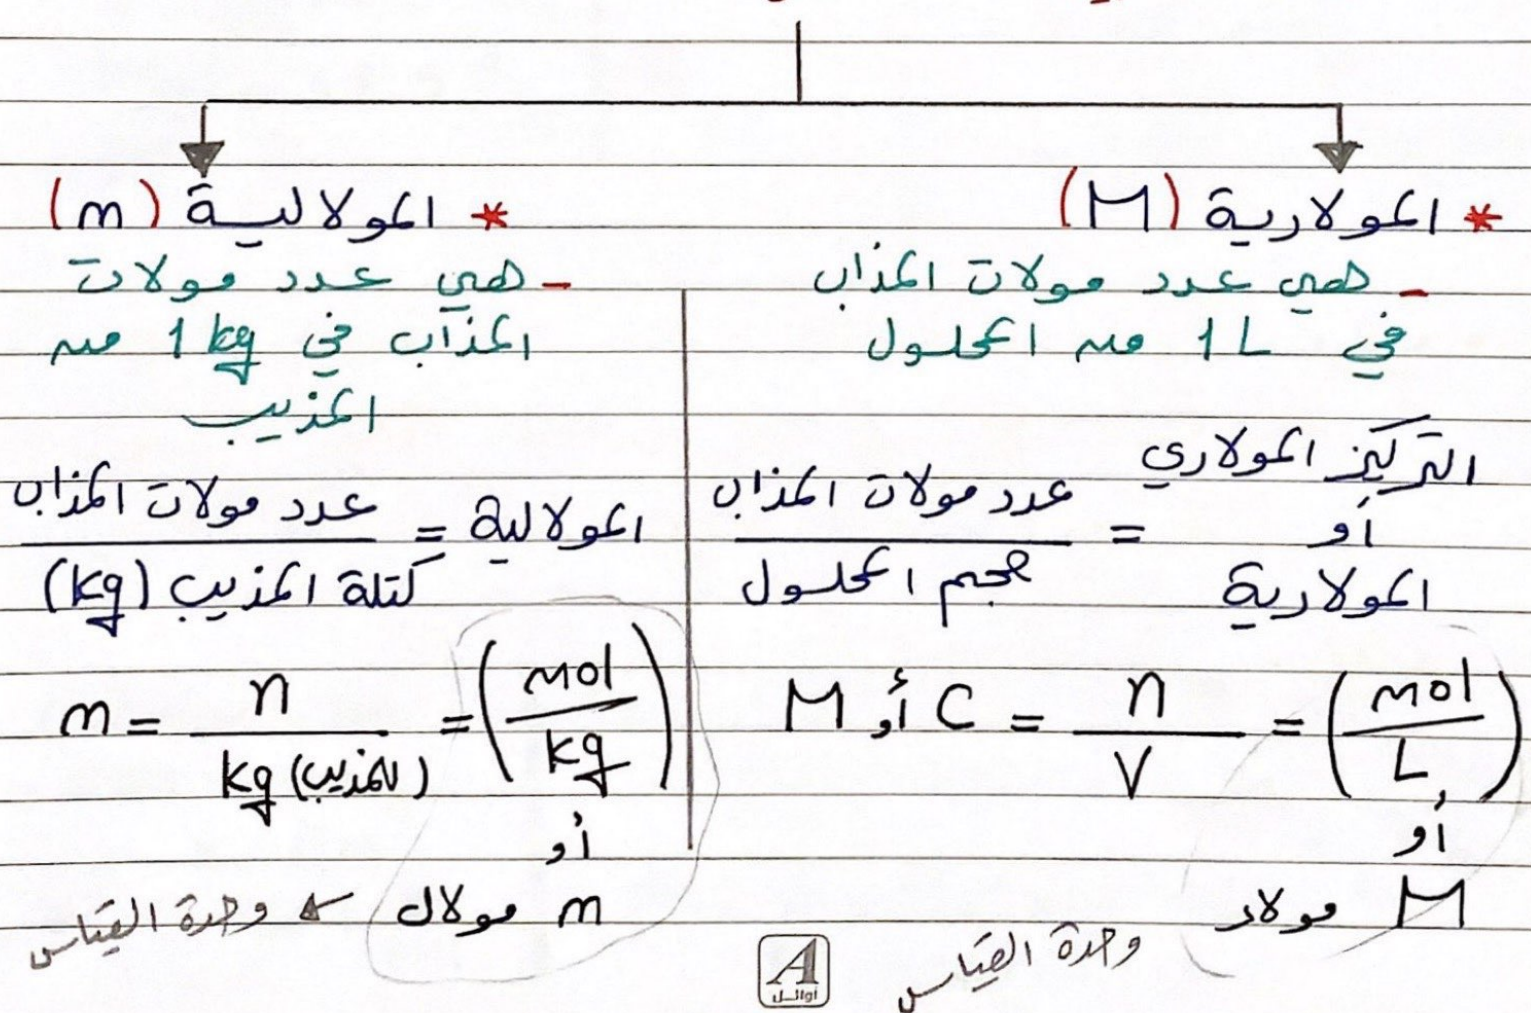 * المولارية (M)
- هي عدد مولات المذاب
في 1 L من المحلول
التركيز المولاري
أو
المولارية
= عدد مولات المذاب
حجم المحلول
M أو C = n / V = (mol / L)
أو
M مولار
وحدة القياس
* المولالية (m)
- هي عدد مولات
المذاب في 1 kg من
المذيب
المولالية = عدد مولات المذاب
كتلة المذيب (kg)
m = n / kg (للمذيب) = (mol / kg)
أو
m مولال
وحدة القياس
A
أوائل